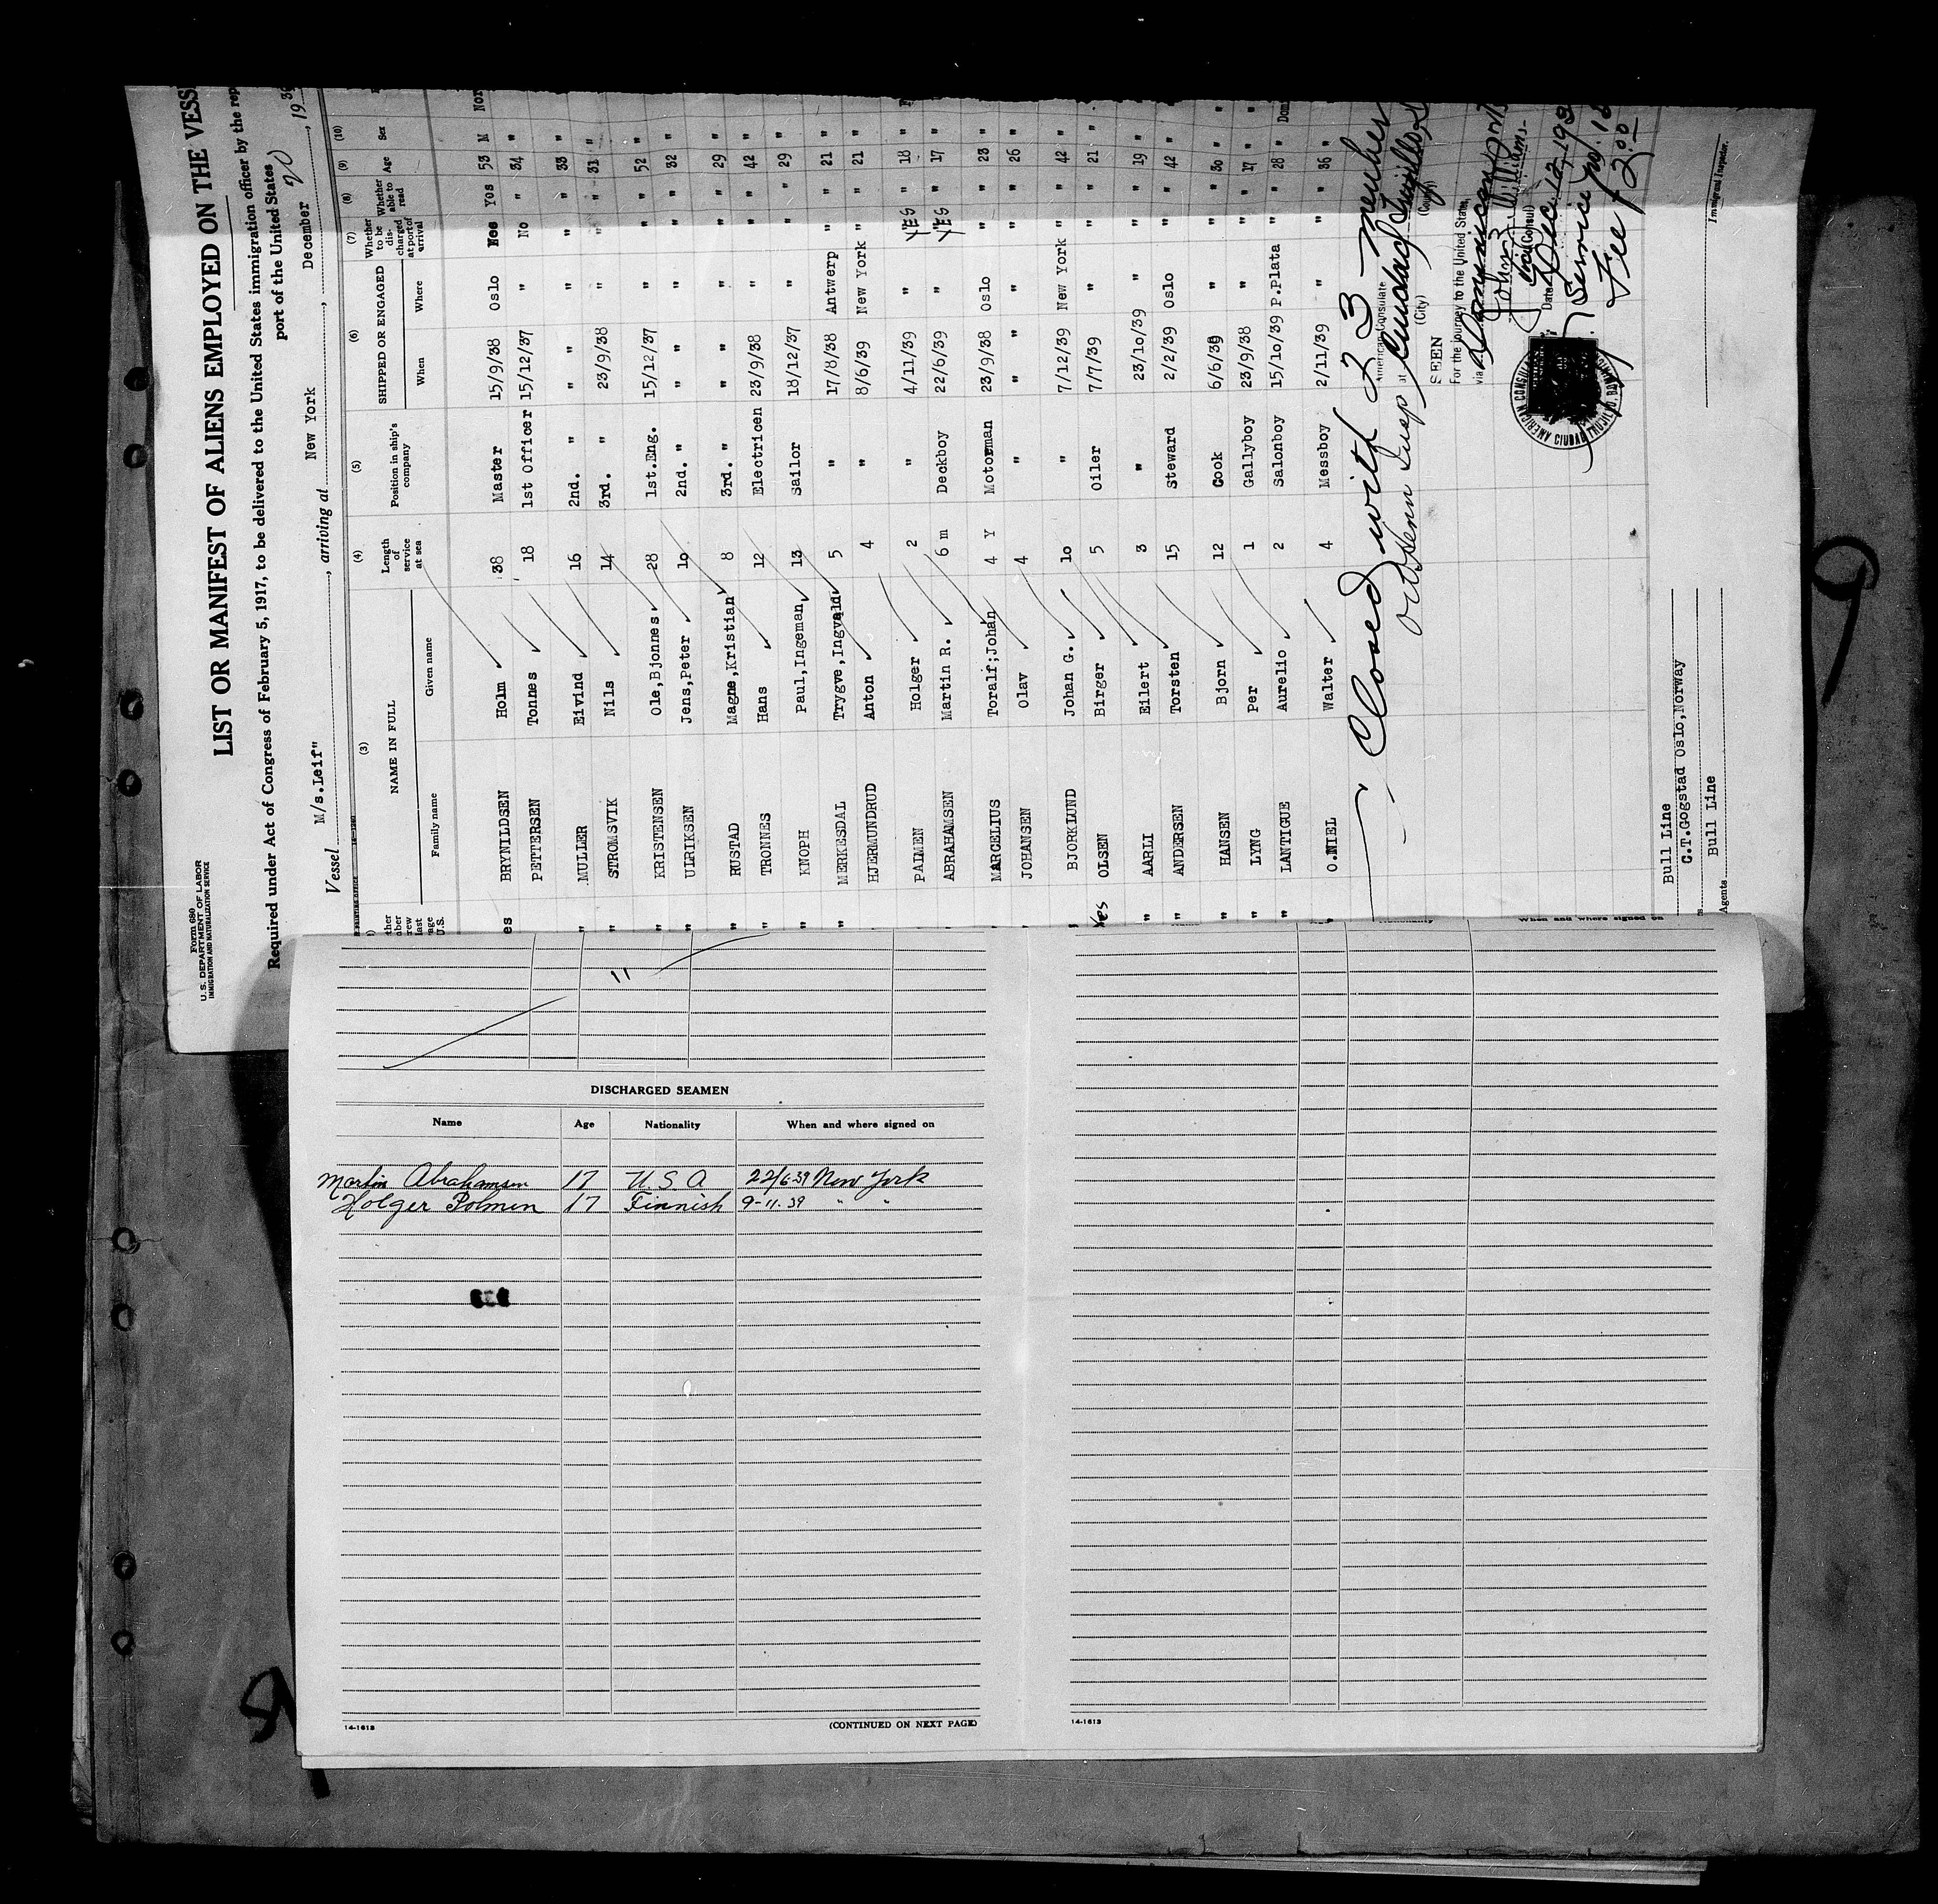 Form 680
U. S. DEPARTMENT OF LABOR
IMMIGRATION AND NATURALIZATION SERVICE
LIST OR MANIFEST OF ALIENS EMPLOYED ON THE VESS
Required under Act of Congress of February 5, 1917, to be delivered to the United States immigration officer by the rep
port of the United States
Vessel M/s.Leif" , arriving at New York , December 20 , 1939
(3) (4) (5) (6) (7) (8) (9) (10)
NAME IN FULL Length of service at sea Position in ship's company SHIPPED OR ENGAGED Whether to be discharged at port of arrival Whether able to read Age Sex
Family name Given name When Where
es BRYNILDSEN Holm 38 Master 15/9/38 Oslo Yes 53 M Nor
PETTERSEN Tonnes 18 1st Officer 15/12/37 " No " 34 "
MULLER Eivind 16 2nd. " " " " " " 33 "
" STROMSVIK Nils 14 3rd. " 23/9/38 " " " 31 "
" KRISTENSEN Ole,Bjonnes 28 1st.Eng. 15/12/37 " " " 52 "
" ULRIKSEN Jens,Peter 10 2nd. " " " " " 32 "
" RUSTAD Magne,Kristian 8 3rd. " " " " " 29 "
" TRONNES Hans 12 Electricen 23/9/38 " " " 42 "
" KNOPH Paul,Ingeman 13 Sailor 18/12/37 " " " 29 "
" MERKESDAL Trygve,Ingvald 5 " 17/8/38 Antwerp " " 21 "
HJERMUNDRUD Anton 4 " 8/6/39 New York " " 21 "
PAIMEN Holger 2 " 4/11/39 " YES " 18 "
ABRAHAMSEN Martin R. 6 m Deckboy 22/6/39 " YES " 17 "
MARCELIUS Toralf;Johan 4 Y Motorman 23/9/38 Oslo " " 23 "
JOHANSEN Olav 4 " " " " " 26 "
" BJORKLUND Johan G. 10 " 7/12/39 New York " " 42 "
Yes OLSEN Birger 5 Oiler 7/7/39 " " " 21 "
" AARLI Eilert 3 " 23/10/39 " " " 19 "
" ANDERSEN Torsten 15 Steward 2/2/39 Oslo " " 42 "
" HANSEN Bjorn 12 Cook 6/6/39 " " " 30 "
" LYNG Per 1 Gallyboy 23/9/38 " " " 17 "
" LANTIGUE Aurelio 2 Salonboy 15/10/39 P.Plata " " 28 " Dom
" O.NIEL Walter 4 Messboy 2/11/39 " " " 36 "
Closed with 23 member
American Consulate
at Ciudad Trujillo
(City) (County)
SEEN
For the journey to the United States,
via
John Williams
Vice Consul
Date Dec. 12, 193
Service No. 18
Fee $ 2.00
AMERICAN CONSULATE CIUDAD TRUJILLO, D.
Bull Line
C.T.Gogstad Oslo,Norway
Agents Bull Line
Immigrant Inspector.
When and where signed on
DISCHARGED SEAMEN
Name Age Nationality When and where signed on
Martin Abrahamsen 17 U.S.A 22/6 39 New York
Holger Polmen 17 Finnish 9-11.39 " "
14-1613 (CONTINUED ON NEXT PAGE)
14-1613
9